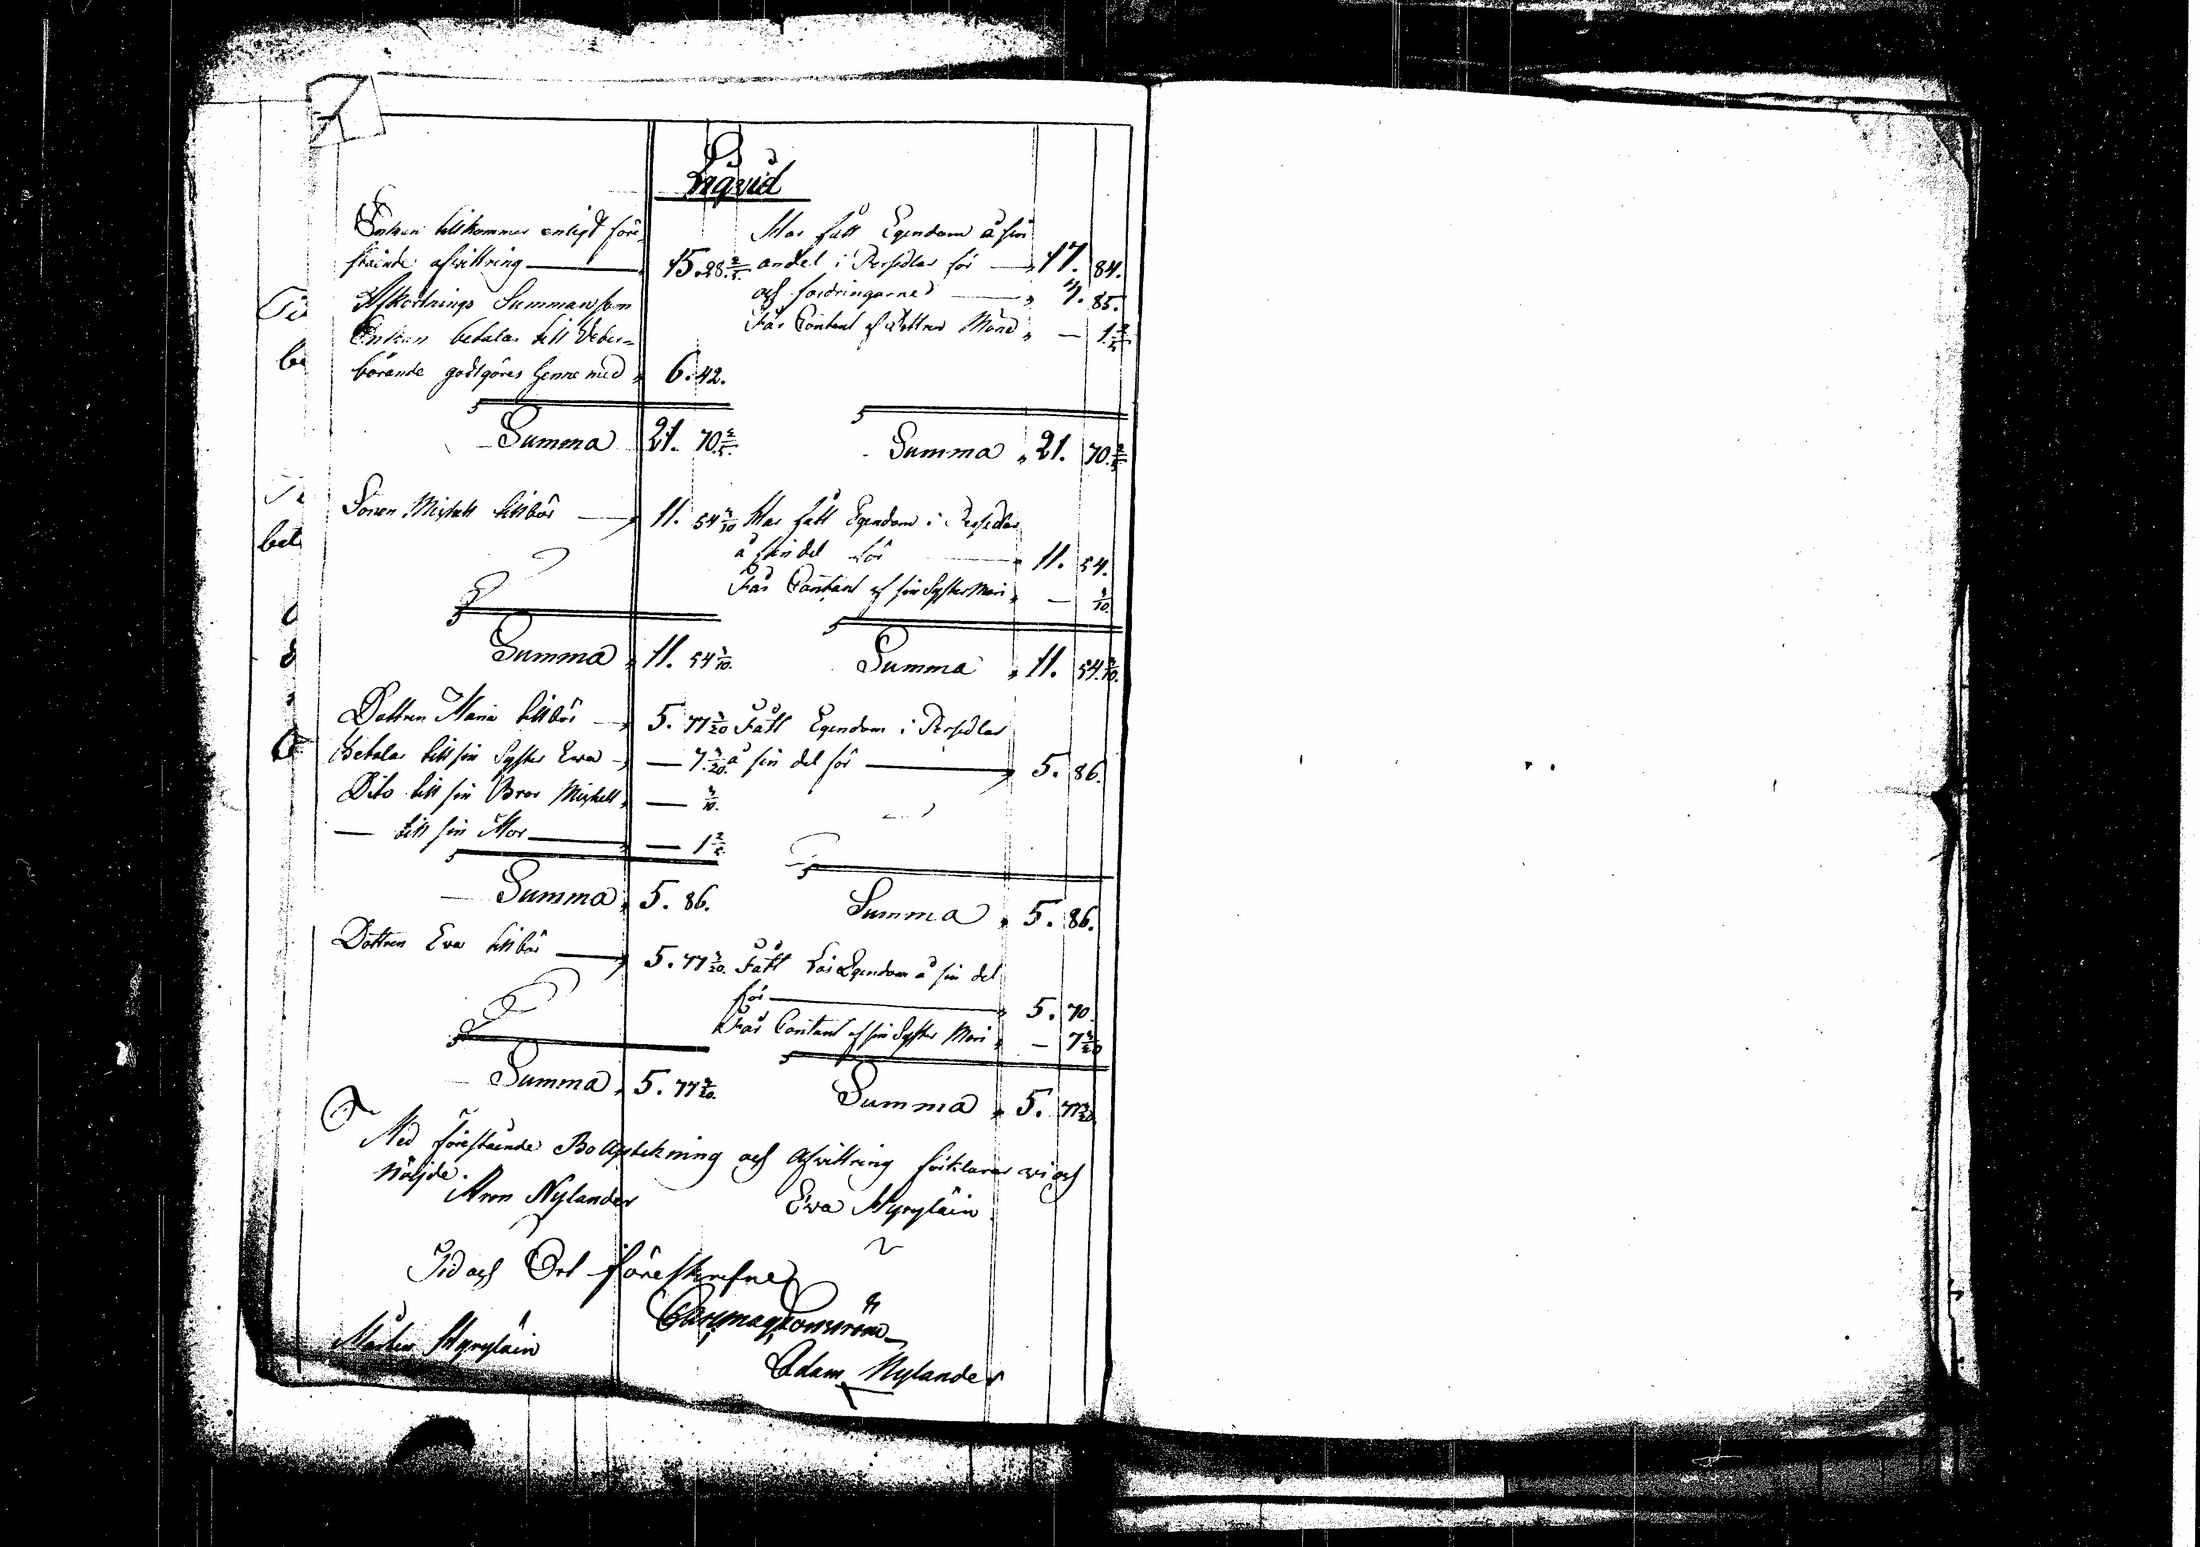 Liqvid
Enkan tillkommer enligt före-
stående afvittring 15. 28 2/5
Afkortnings Summan som
Enkan betalar till Veder=
börande godtgöres henne med 6. 42.
Summa 21. 70 2/5
Har fått Egendom å sin
andel i Persedlar för 17. 84.
och fordringarne 3. 85.
Får Contant af Dottren Maria — 1 2/5
Summa 21. 70 2/5
Sonen Mickell tillkör 11. 54 3/10
Summa 11. 54 3/10
Har fått Egendom i Persedlar
å sin del för 11. 54.
Får Contant af sin Syster Mari — 3/10
Summa 11. 54 3/10
Dottren Maria tillhör 5. 77 3/20
Betalar till sin Syster Ewa — 7 3/20
Dito till sin Bror Mickell — 3/10
— till sin Mor — 1 2/5
Summa 5. 86.
Fått Egendom i Persedlar
å sin del för 5. 86.
Summa 5. 86.
Dottren Eva tillhör 5. 77 3/20
Summa 5. 77 3/20
Fått Lös Egendom å sin del
för 5. 70.
Får Contant af sin Syster Mari — 7 3/20
Summa 5. 77 3/20
Med förestående Bo Upteckning och Afvittring förklarar vi oss
Nöijde.
Aron Nylander Eva Hyryläin
Tid och Ort föreskrefne
Mårten Hyryläin
Adam Nylander